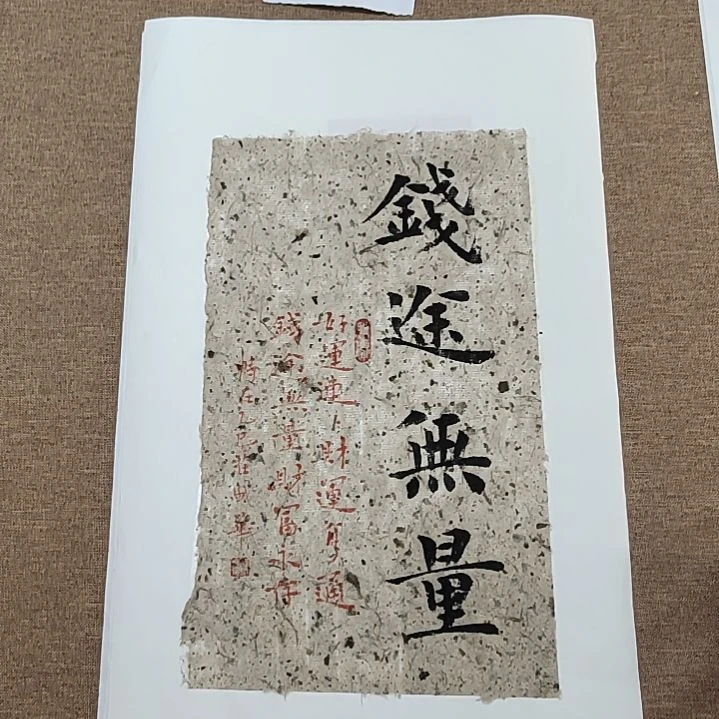 錢途無量
好運連連財運亨通
錢途無量財富永存
時在乙巳